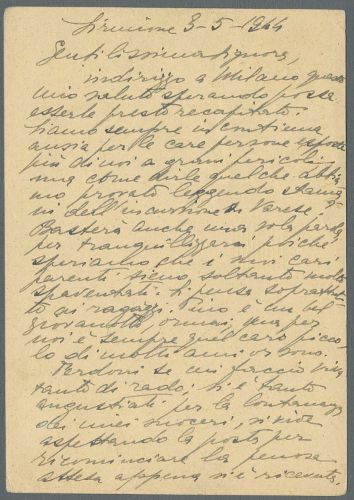 Sirmione 3-5-1944
Gentilissima Signora,
indirizzo a Milano questo
mio saluto sperando possa
esserle presto recapitato.
Siamo sempre in continua
ansia per le care persone esposte
più di noi a grami pericoli
ma come dirle quel che abbia
mo provato leggendo stama
ni dell'incursione su Varese?
Basterà anche una sola parola
per tranquillizzarci poiché
speriamo che i suoi cari
parenti siano soltanto molto
spaventati. Si pensa soprattut
to ai ragazzi. Pino è un bel
giovanotto, ormai, ma per
noi è sempre quel caro picco
lo di molti anni or sono.
Perdoni se mi faccio viva
tanto di rado: si è tanto
angustiati per la lontananza
dei miei suoceri, si vive
aspettando la posta per
ricominciare la penosa
attesa appena si è ricevuta.